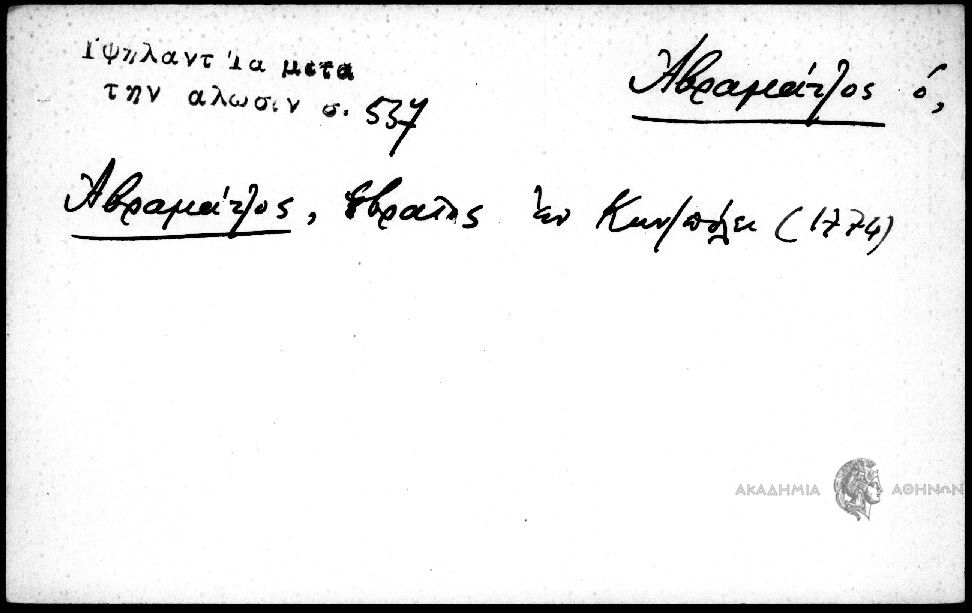 Ὑψηλαντ Τα μετα
την αλωσιν σ. 537
Ἀβραμάτζος ὁ,
Ἀβραμάτζος, Ἑβραῖος ἐν Κων/πόλει (1774)
ΑΚΑΔΗΜΙΑ ΑΘΗΝΩΝ